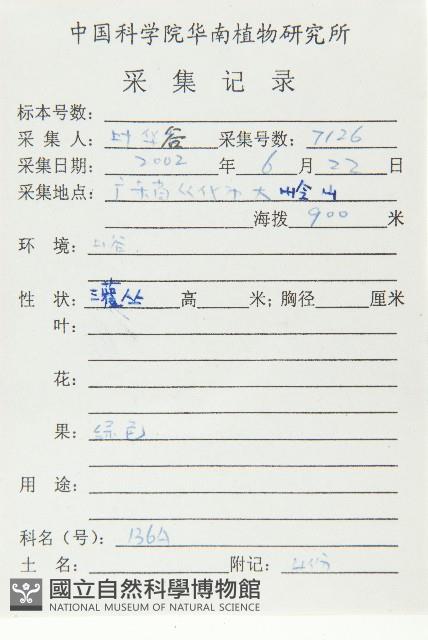 中国科学院华南植物研究所
采集记录
标本号数：
采集人：叶华谷 采集号数：7126
采集日期：2002 年 6 月 22 日
采集地点：广东省从化市大岭山
海拨 900 米
环境：山谷.
性状：灌丛 高 米；胸径 厘米
叶：
花：
果：绿色.
用途：
科名（号）：136A
土名： 附记：4份
國立自然科學博物館
NATIONAL MUSEUM OF NATURAL SCIENCE